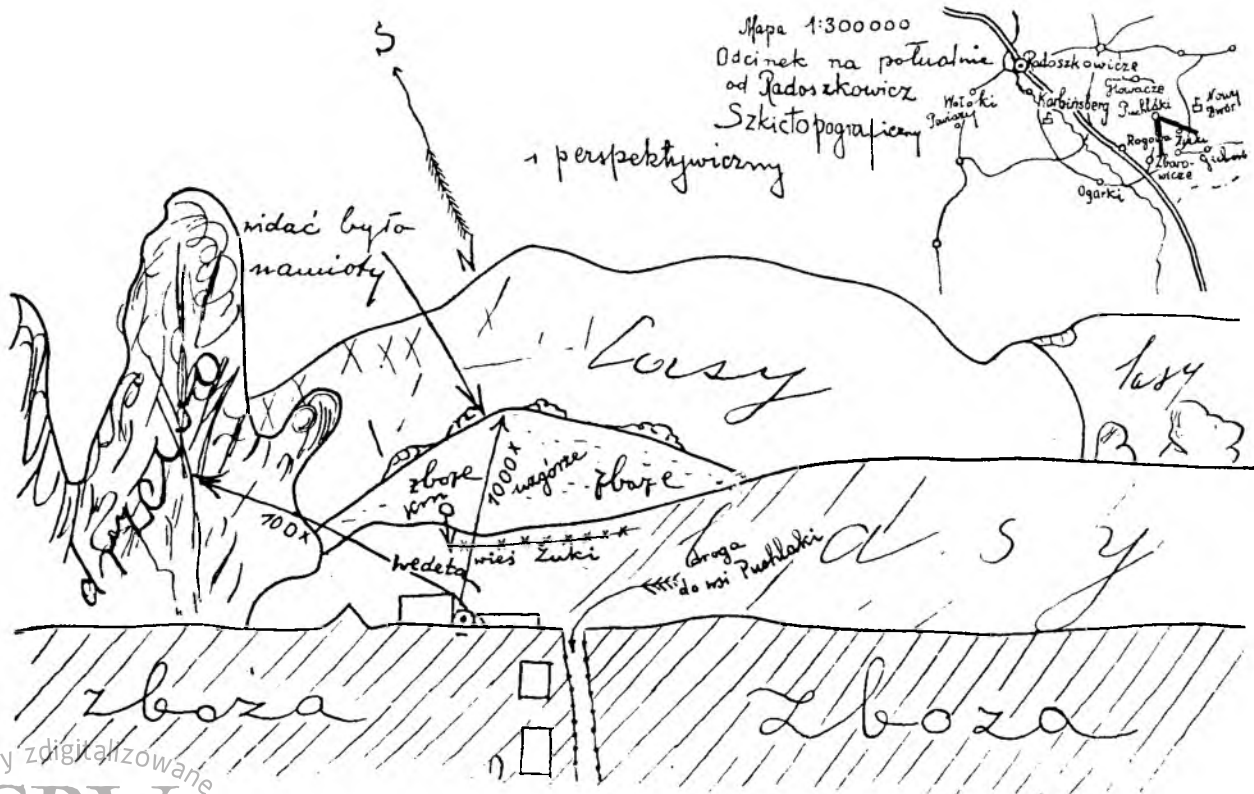 S
Mapa 1:300000
Odcinek na południe
od Radoszkowicz
Szkic topograficzny
i perspektywiczny
Radoszkowicze
Głowacze
Karbinsberg
Puchlaki
Nowy
Dwór
Wołoki
Rogowa
Żuki
Zbaro-
wicze
Ogarki
widać było
namioty
N
Lasy
lasy
zboże
km
1000 x
wzgórze
zboże
100 x
wedeta
wieś Żuki
droga
do wsi Puchlaki
Lasy
zboża
zboża
y zdigitalizowane